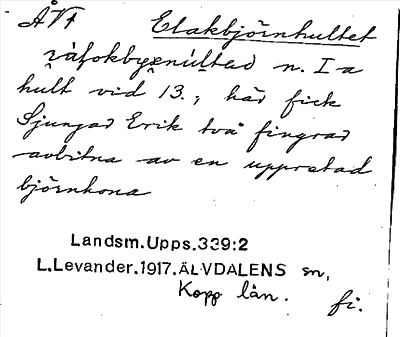 ÅVf Elakbjörnhultet
n. I a
hult vid 13.; här fick
Ljungar Erik två fingrar
avbitna av en uppretad
björnhona
Landsm.Upps.339:2
L.Levander.1917.ÄLVDALENS sn,
Kopp län.
fi.